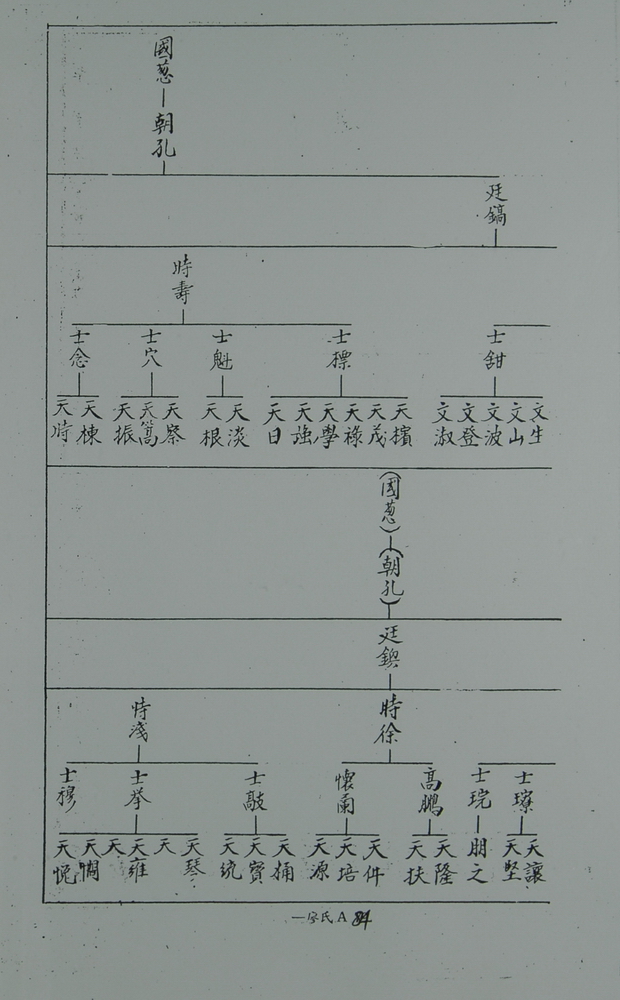 國蔥
朝孔
廷鎬
時壽
士甜
士標
士魁
士穴
士念
文生
文山
文波
文登
文淑
天檳
天茂
天祿
天學
天強
天日
天淡
天根
天察
天嵩
天振
天棟
天時
(國蔥)
(朝孔)
廷鐭
時徐
時淺
士琮
士琓
高鵬
懷爾
士敲
士举
士穆
天讓
天堅
朋之
天隆
天扶
天件
天培
天源
天捅
天寳
天統
天琴
天
天雍
天
天憪
天悅
一家氏A 84